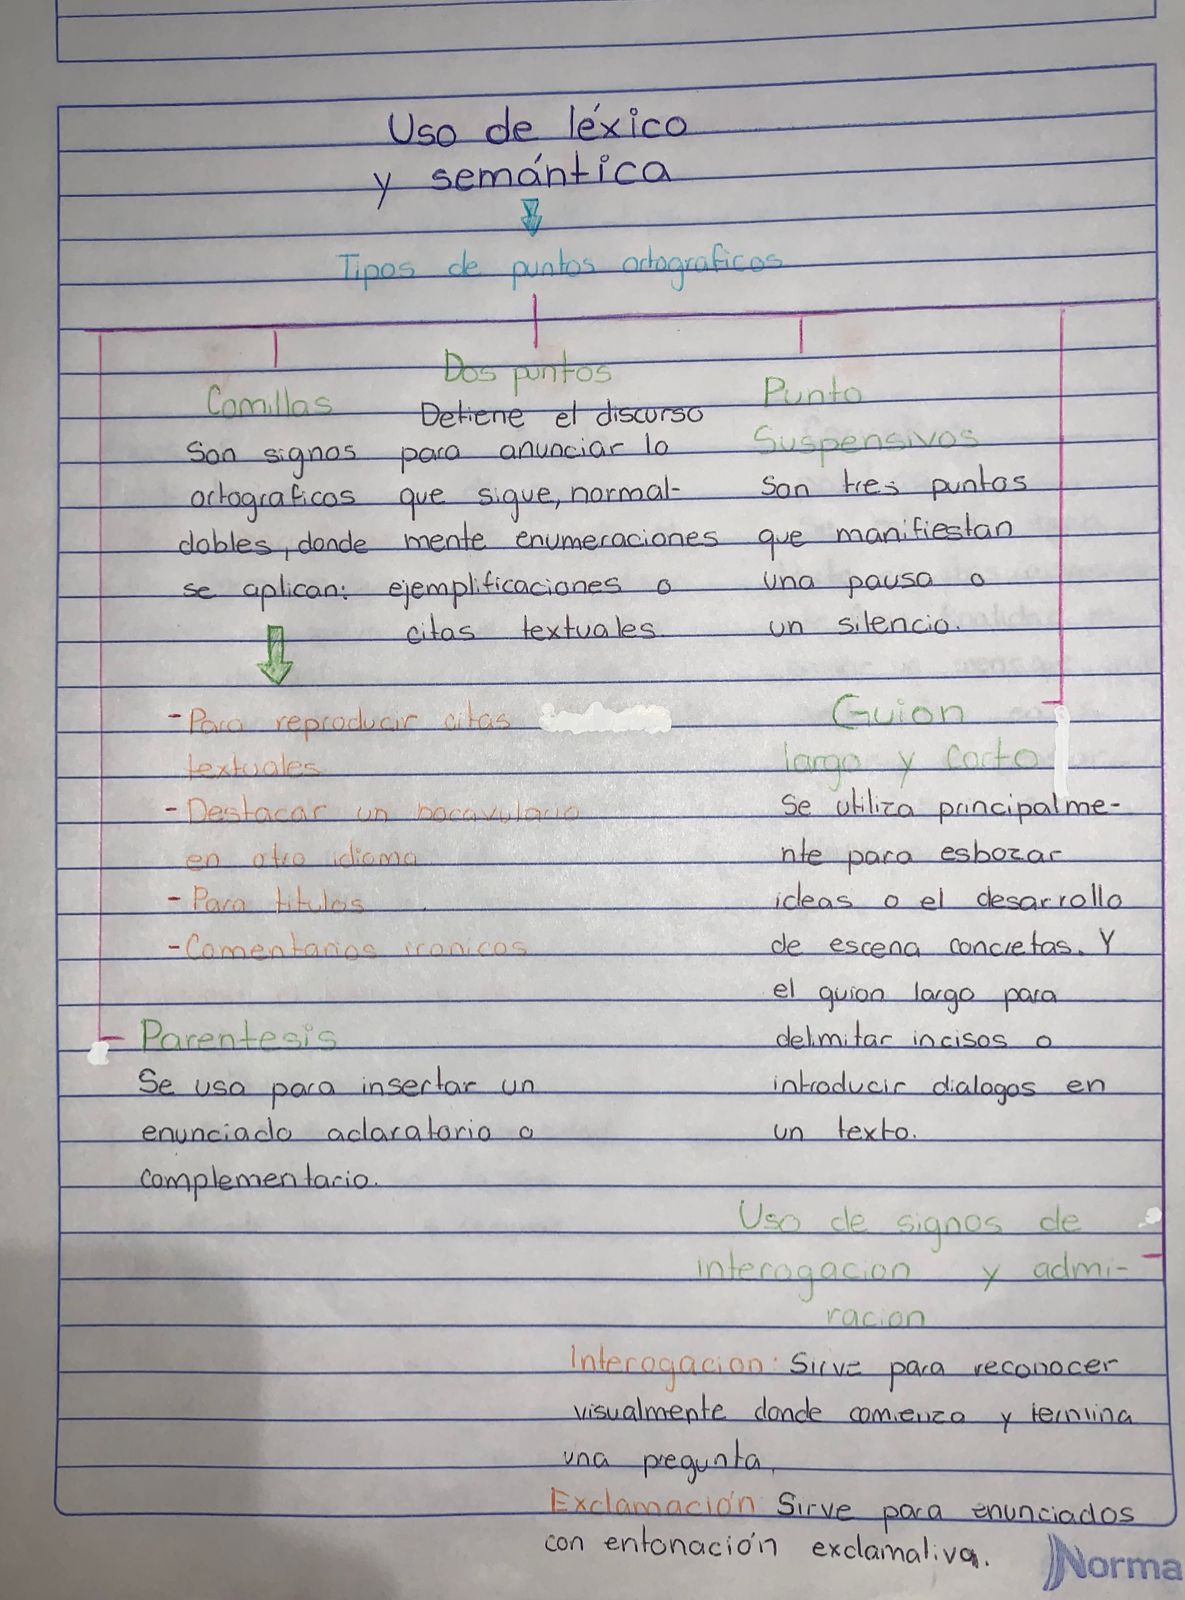 Uso de léxico
y semántica
Tipos de puntos ortograficos
Comillas
Son signos
ortograficos
dobles, donde
se aplican:
- Para reproducir citas
textuales
- Destacar un bocavulario
en otro idioma
- Para titulos
- Comentarios ironicos
Dos puntos
Detiene el discurso
para anunciar lo
que sigue, normal-
mente enumeraciones
ejemplificaciones o
citas textuales.
Punto
Suspensivos
Son tres puntos
que manifiestan
una pausa o
un silencio.
Guion
largo y corto
Se utiliza principalme-
nte para esbozar
ideas o el desarrollo
de escena concretas. Y
el guion largo para
delimitar incisos o
introducir dialogos en
un texto.
Parentesis
Se usa para insertar un
enunciado aclaratorio o
complementario.
Uso de signos de
interogacion y admi-
racion
Interogacion: Sirve para reconocer
visualmente donde comienza y termina
una pregunta.
Exclamación: Sirve para enunciados
con entonación exclamativa.
Norma